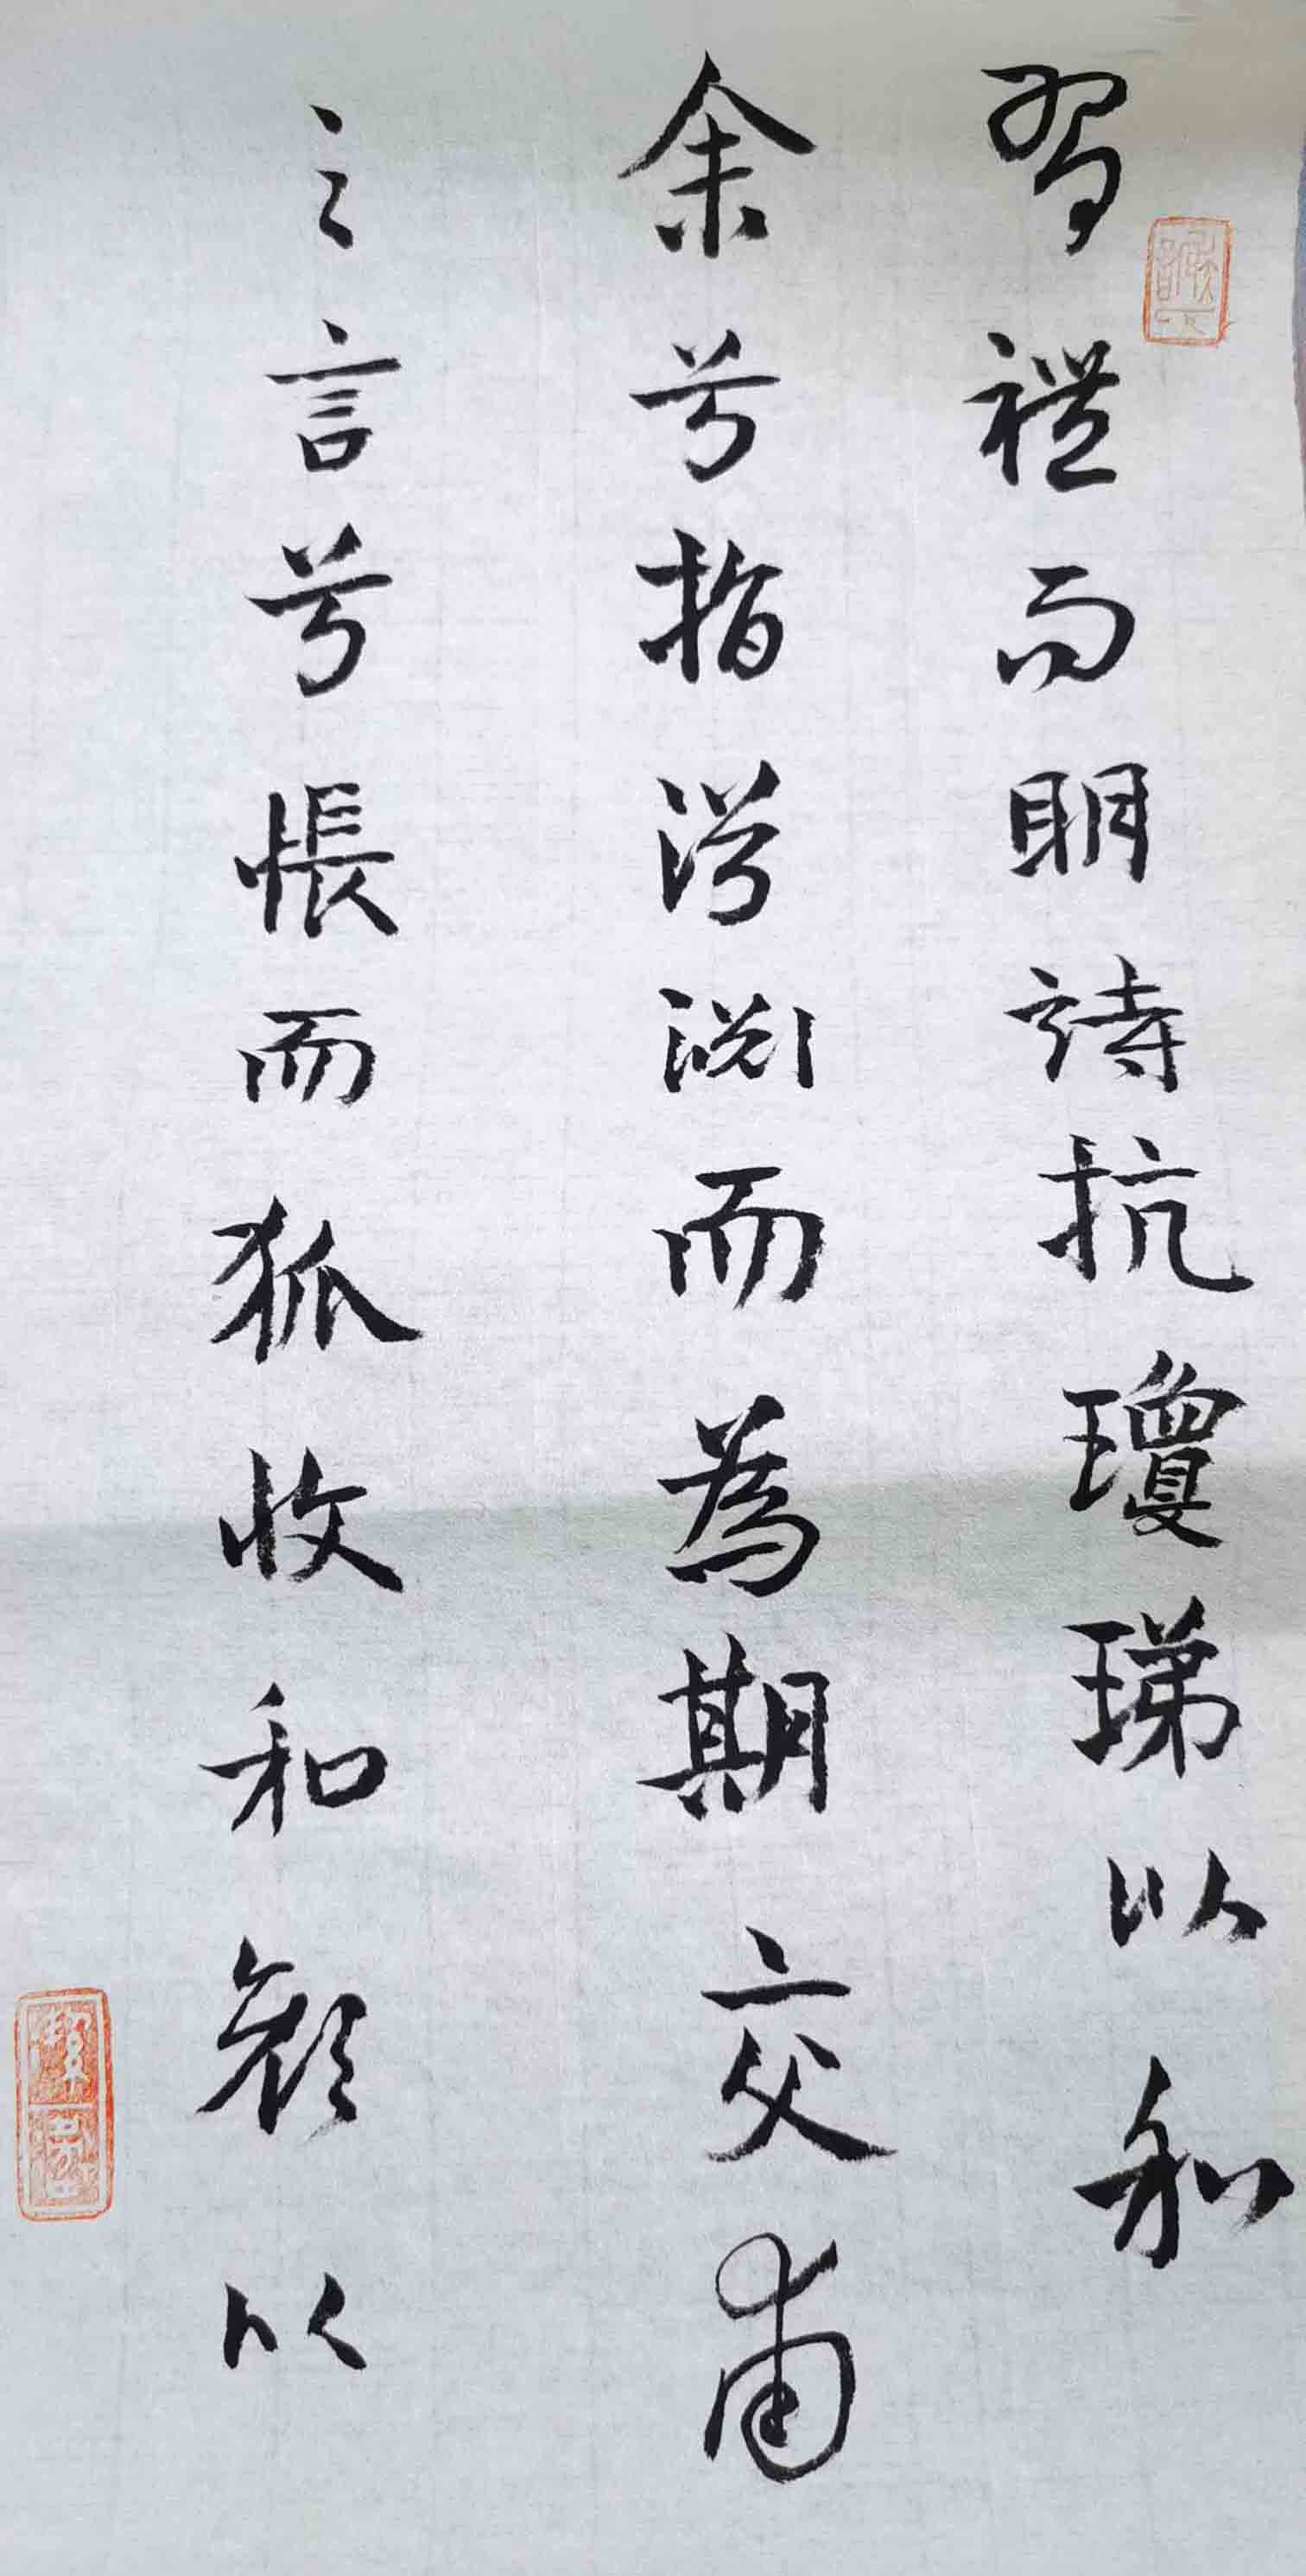 習禮而明詩抗瓊珶以和
余兮指潛淵而為期交甫
之言兮悵而狐收和顏以